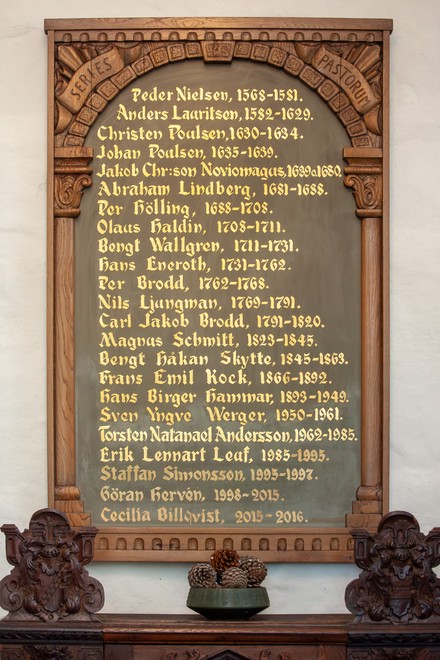 SERIES PASTORUM
Peder Nielsen, 1568-1581.
Anders Lauritsen, 1582-1629.
Christen Poulsen, 1630-1634.
Johan Poulsen, 1635-1639.
Jakob Chr:son Noviomagus, 1639-1680.
Abraham Lindberg, 1681-1688.
Per Hölling, 1688-1708.
Olaus Haldin, 1708-1711.
Bengt Wallgren, 1711-1731.
Hans Eneroth, 1731-1762.
Per Brodd, 1762-1768.
Nils Ljungman, 1769-1791.
Carl Jakob Brodd, 1791-1820.
Magnus Schmitt, 1823-1845.
Bengt Håkan Skytte, 1845-1863.
Frans Emil Kock, 1866-1892.
Hans Birger Hammar, 1893-1949.
Sven Yngve Werger, 1950-1961.
Torsten Natanael Andersson, 1962-1985.
Erik Lennart Leuf, 1985-1995.
Staffan Simonsson, 1995-1997.
Göran Hervén, 1998-2015.
Cecilia Billqvist, 2015-2016.